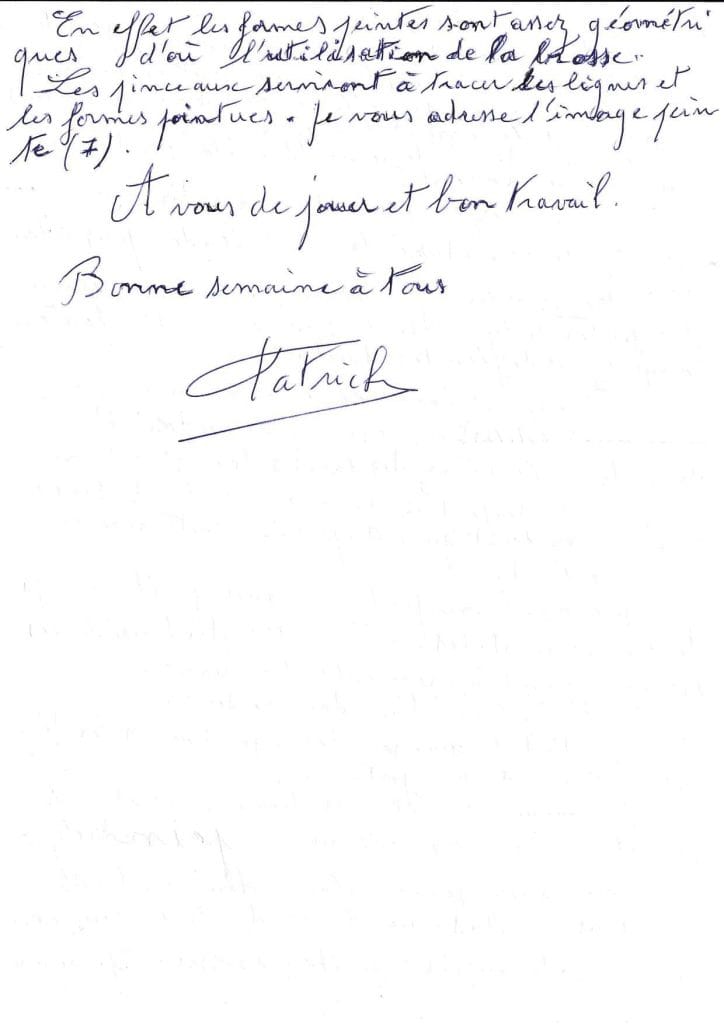 En effet les formes peintes sont assez géométri
ques d'où l'utilisation de la brosse.
Les pinceaux serviront à tracer les lignes et
les formes pointues. Je vous adresse l'image pein
te (7).
A vous de jouer et bon travail.
Bonne semaine à tous
Patrick